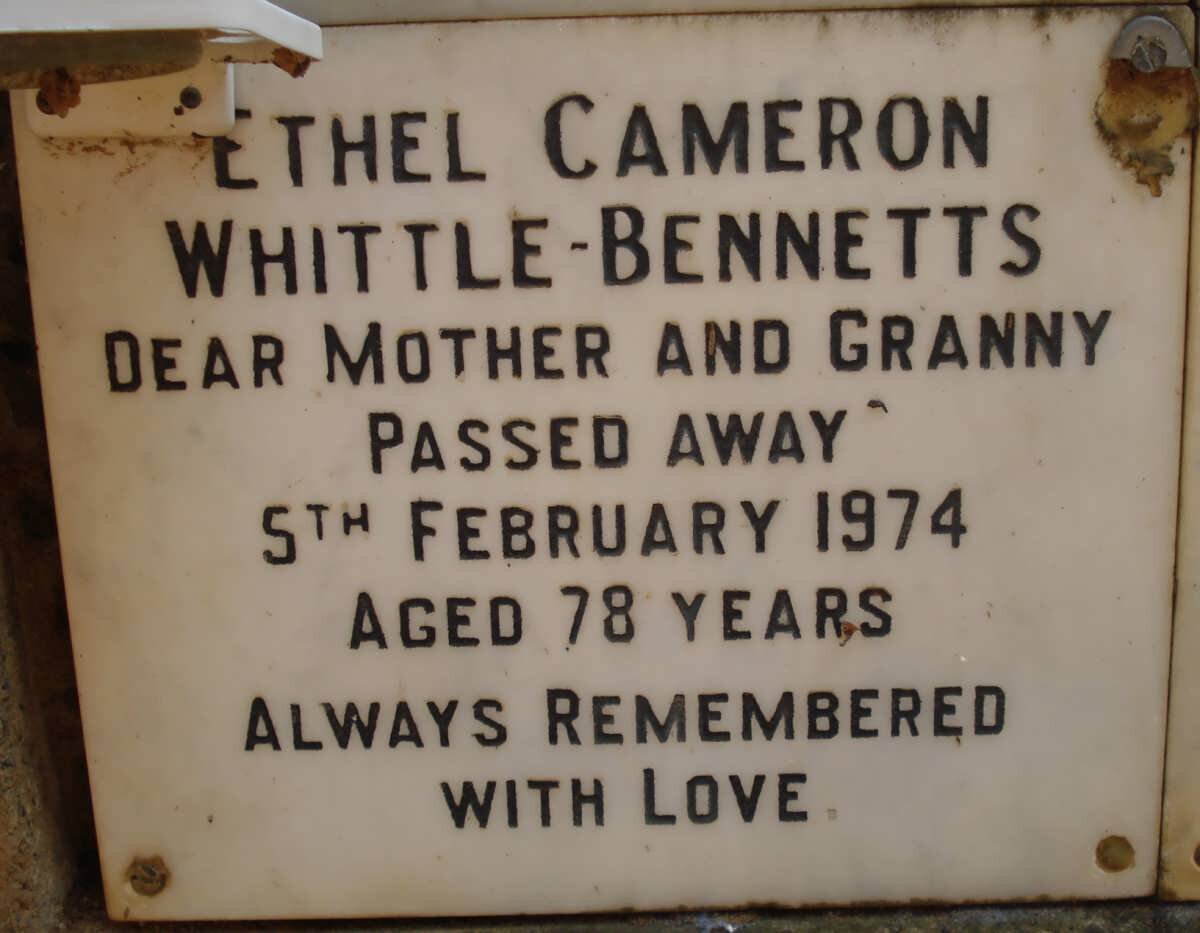 ETHEL CAMERON
WHITTLE-BENNETTS
DEAR MOTHER AND GRANNY
PASSED AWAY
5TH FEBRUARY 1974
AGED 78 YEARS
ALWAYS REMEMBERED
WITH LOVE.